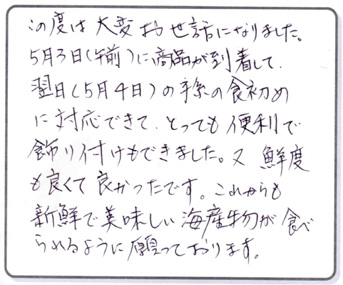 この度は大変お世話になりました。
5月3日(午前)に商品が到着して、
翌日(5月4日)の孫の食初め
に対応できて、とっても便利で
飾り付けもできました。又 鮮度
も良くて良かったです。これからも
新鮮で美味しい海産物が食べ
られるように願っております。